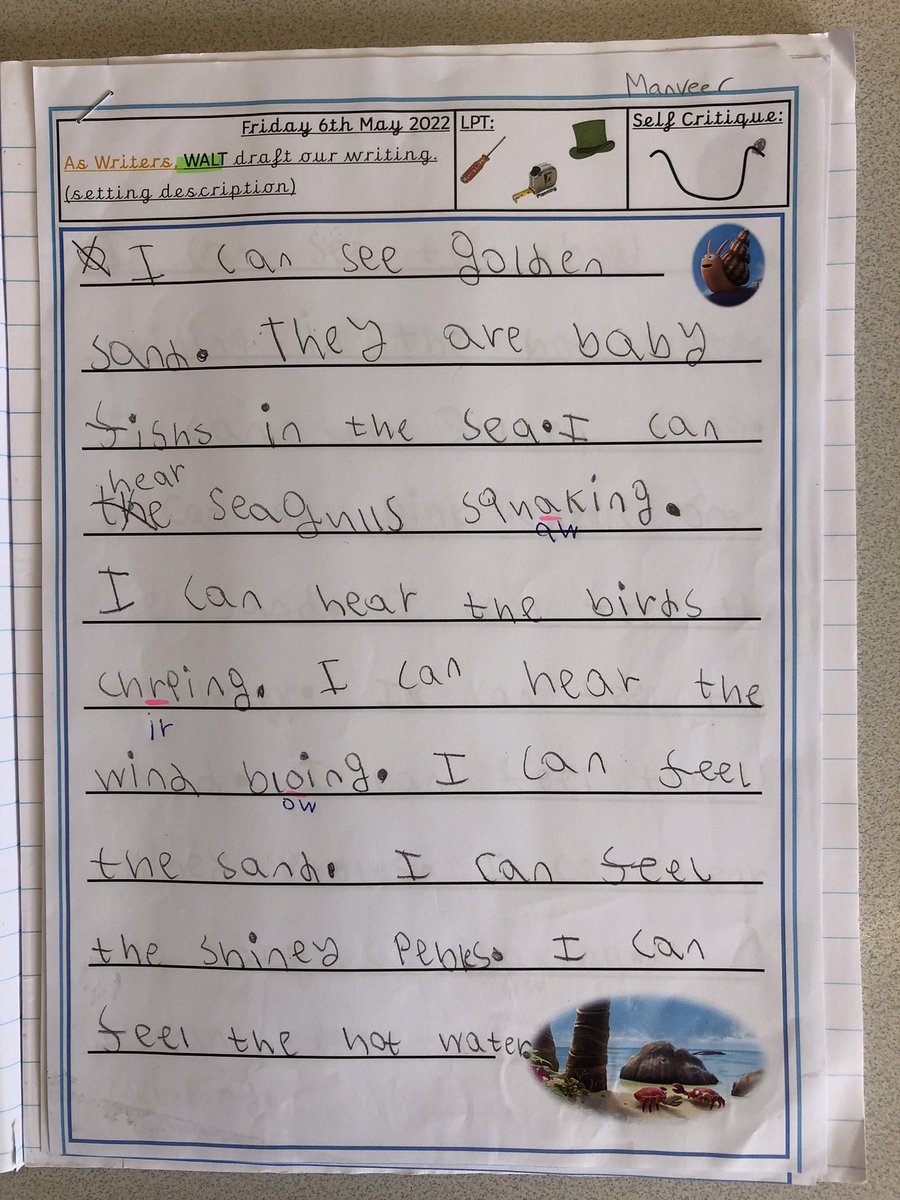 Manveer
Friday 6th May 2022
LPT:
Self Critique:
As Writers, WALT draft our writing.
(setting description)
I can see golden
sand. They are baby
fishs in the sea. I can
hear
the seagulls squaking.
aw
I can hear the birds
chrping. I can hear the
ir
wind bloing. I can feel
ow
the sand. I can feel
the shiney pebls. I can
feel the hot water.